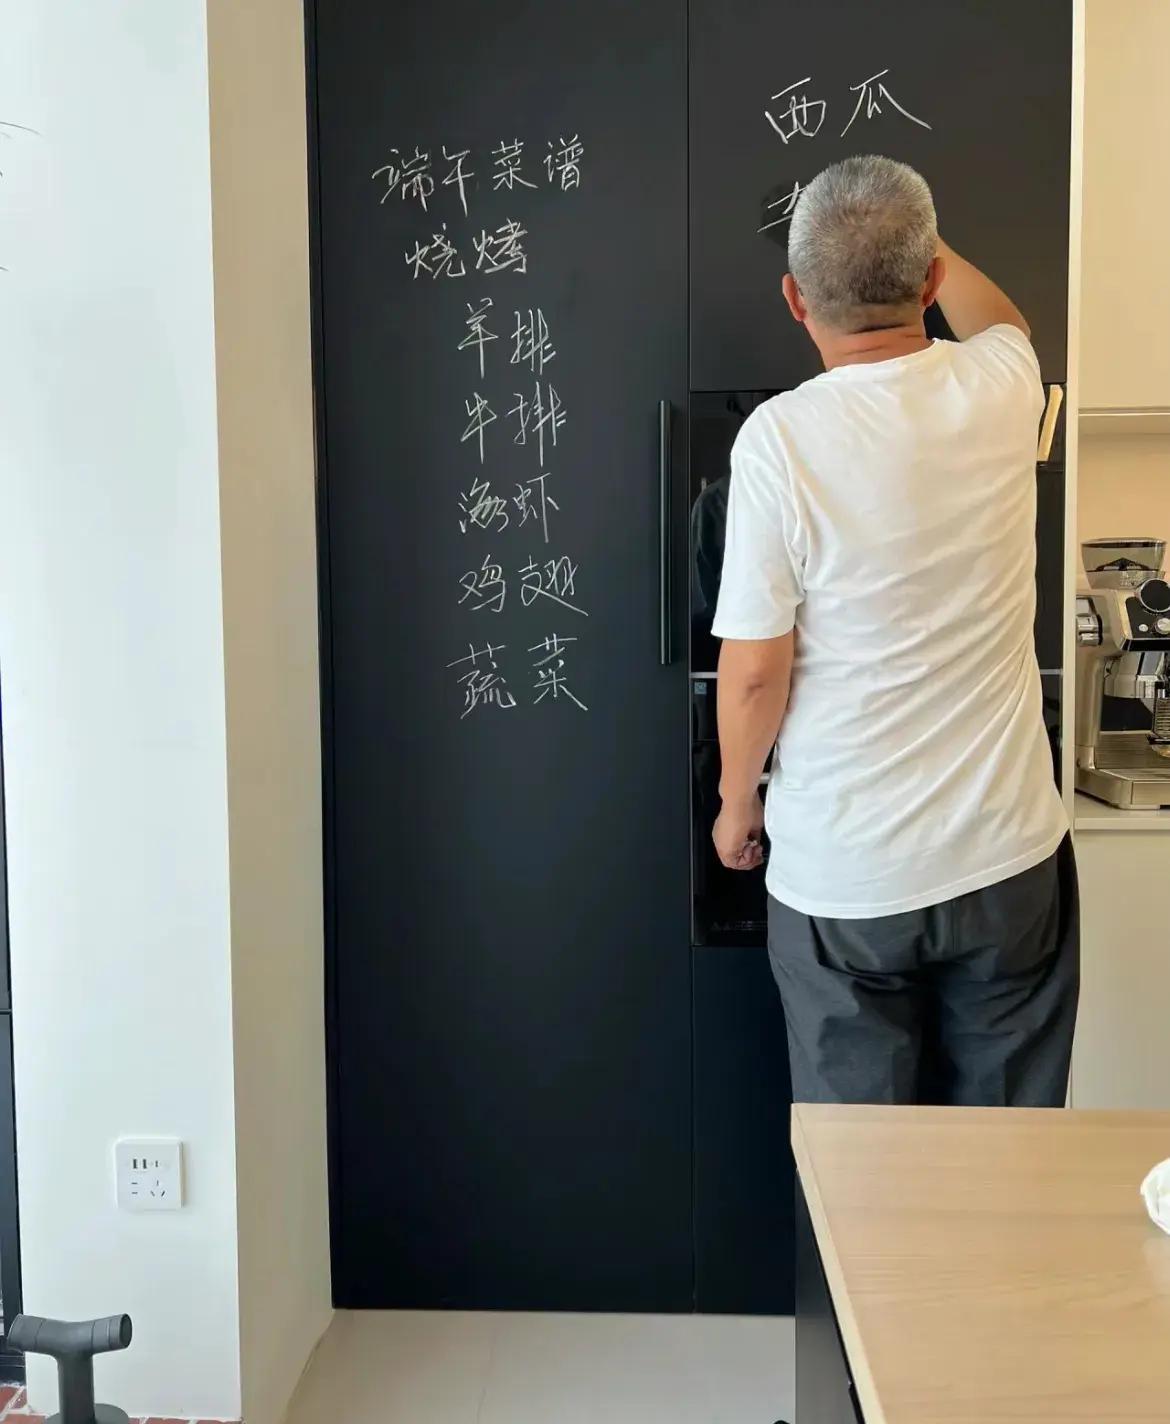 端午菜谱
烧烤
羊排
牛排
海虾
鸡翅
蔬菜
西瓜